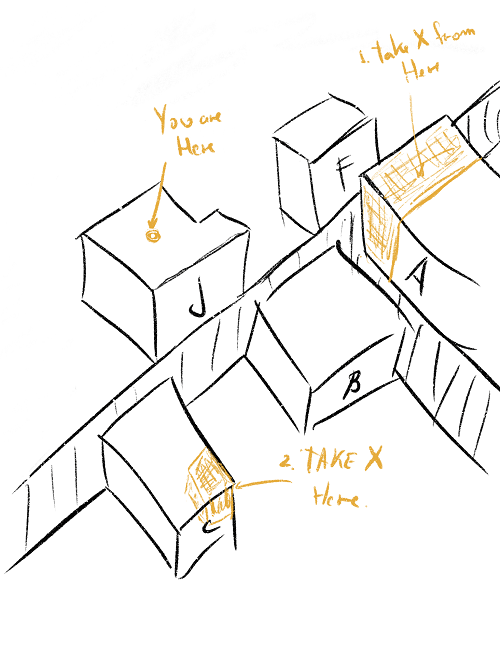 1. Take X from
Here
You are
Here
F
A
J
B
2. TAKE X
Here.
C